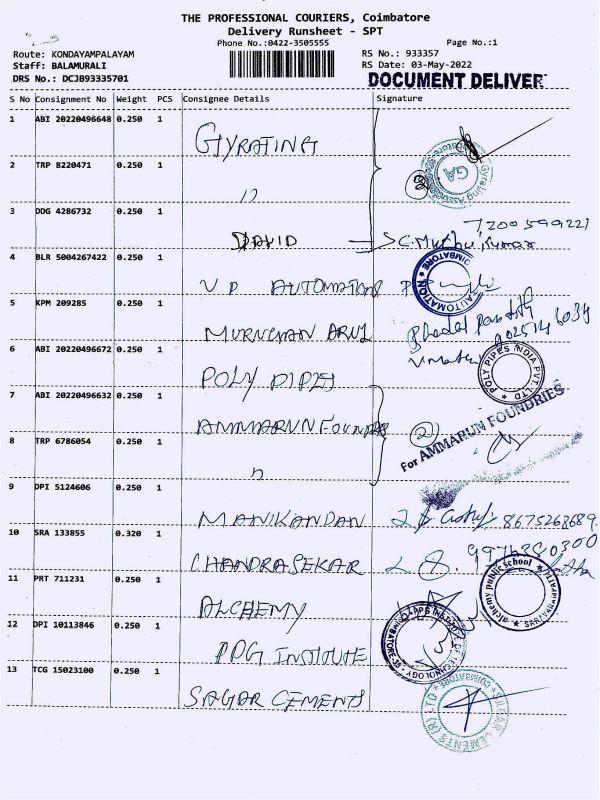 THE PROFESSIONAL COURIERS, Coimbatore
Delivery Runsheet - SPT
Phone No.:0422-3505555
Page No.:1
Route: KONDAYAMPALAYAM
RS No.: 933357
Staff: BALAMURALI
RS Date: 03-May-2022
DRS No.: DCJB93335701
DOCUMENT DELIVER
S No Consignment No Weight PCS Consignee Details Signature
1 ABI 20220496648 0.250 1
GYRATING
2 TRP 8220471 0.250 1
GA
②
11
3 DDG 4286732 0.250 1
7200599221
DAVID C. Muthu Kumar
4 BLR 5004267422 0.250 1
V P AUTOMATION
COIMBATORE * AUTOMATION *
5 KPM 209285 0.250 1
MURUGHAN ARUL
9025146034
6 ABI 20220496672 0.250 1
POLY PIPES
POLY PIPES INDIA PVT. LTD
7 ABI 20220496632 0.250 1
AMMARUN FOUNDRE
②
For AMMARUN FOUNDRIES
8 TRP 6786054 0.250 1
11
9 DPI 5124606 0.250 1
MANIKANDAN 8675268689
10 SRA 133855 0.320 1
CHANDRASEKAR
alchemy public school
11 PRT 711231 0.250 1
ALCHEMY
12 DPI 10113846 0.250 1
PPG INSTITUTE
PPG INSTITUTE OF TECHNOLOGY
13 TCG 15023100 0.250 1
SAGAR CEMENTS
SAGAR CEMENTS (R)
COIMBATORE